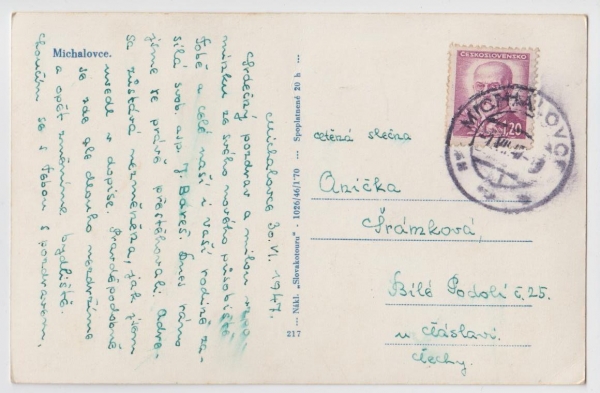 Michalovce.
Michalovce 30.VI.1947.
Srdečný pozdrav a milou
ze svého nového působiště
Tobě a celé naší i Vaší rodině za-
sílá svob. asp. J. Bareš. Dnes ráno
jsme se právě přestěhovali. Adre-
sa zůstává nezměněna, jak jsem
uvedl v dopise. Pravděpodobně
se zde dlouho nezdržíme
a opět změníme bydliště.
Loučím se s Tebou s pozdravem,
... Nákl. „Slovakotouru" - 1026/46/170 ... Spoplatnené 20 h ...
217
ČESKOSLOVENSKO
1·20
MICHALOVCE
ctěná slečna
Anička
Šrámková,
Bílé Podolí č. 25.
u Čáslavi.
Čechy.